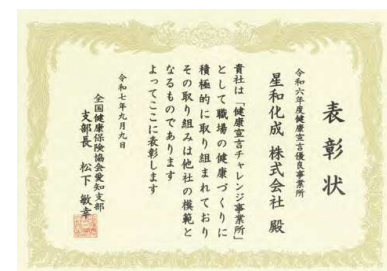 表彰状
令和六年度健康宣言優良事業所
星和化成 株式会社 殿
貴社は「健康宣言チャレンジ事業所」
として職場の健康づくりに
積極的に取り組まれており
その取り組みは他社の模範と
なるものであります
よってここに表彰します
令和七年九月九日
全国健康保険協会愛知支部
支部長 松下 敏幸